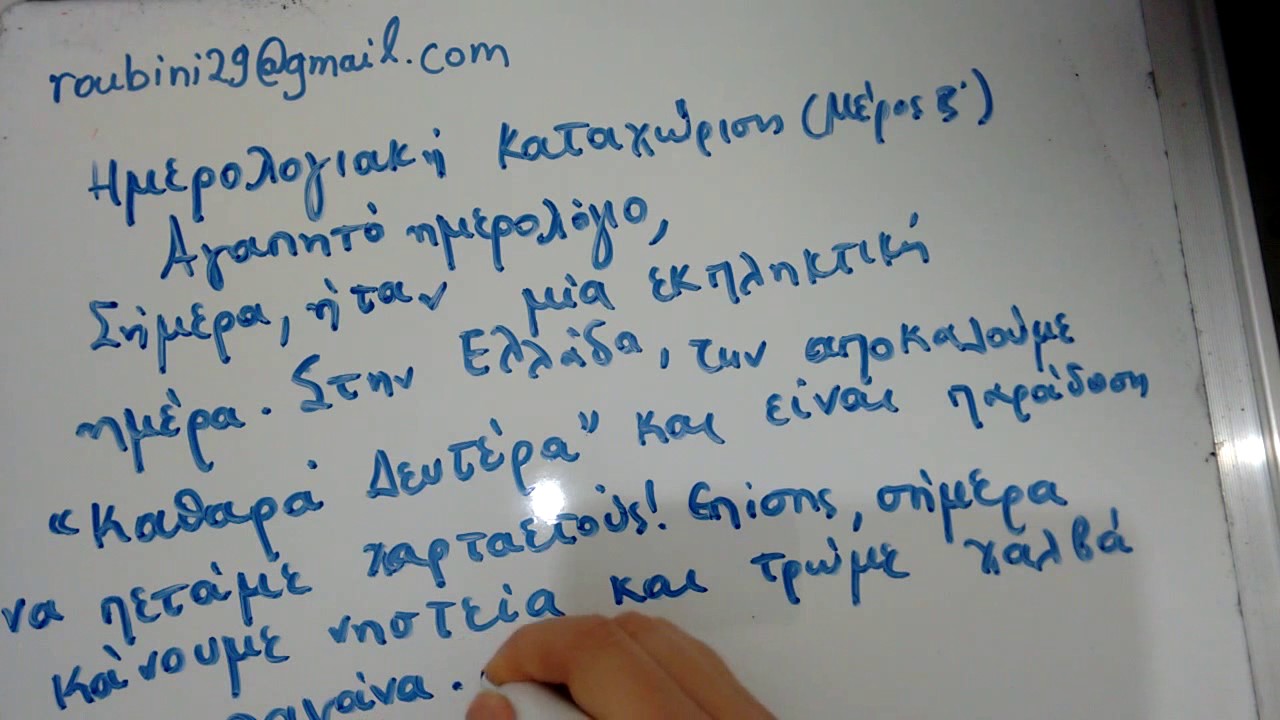 roubini29@gmail.com
Ημερολογιακή καταχώριση (Μέρος ζ')
Αγαπητό ημερολόγιο,
Σήμερα, ήταν μία εκπληκτική
ημέρα. Στην Ελλάδα, την αποκαλούμε
“Καθαρά Δευτέρα” και είναι παράδοση
να πετάμε χαρταετούς! Επίσης, σήμερα
κάνουμε νηστεία και τρώμε χαλβά